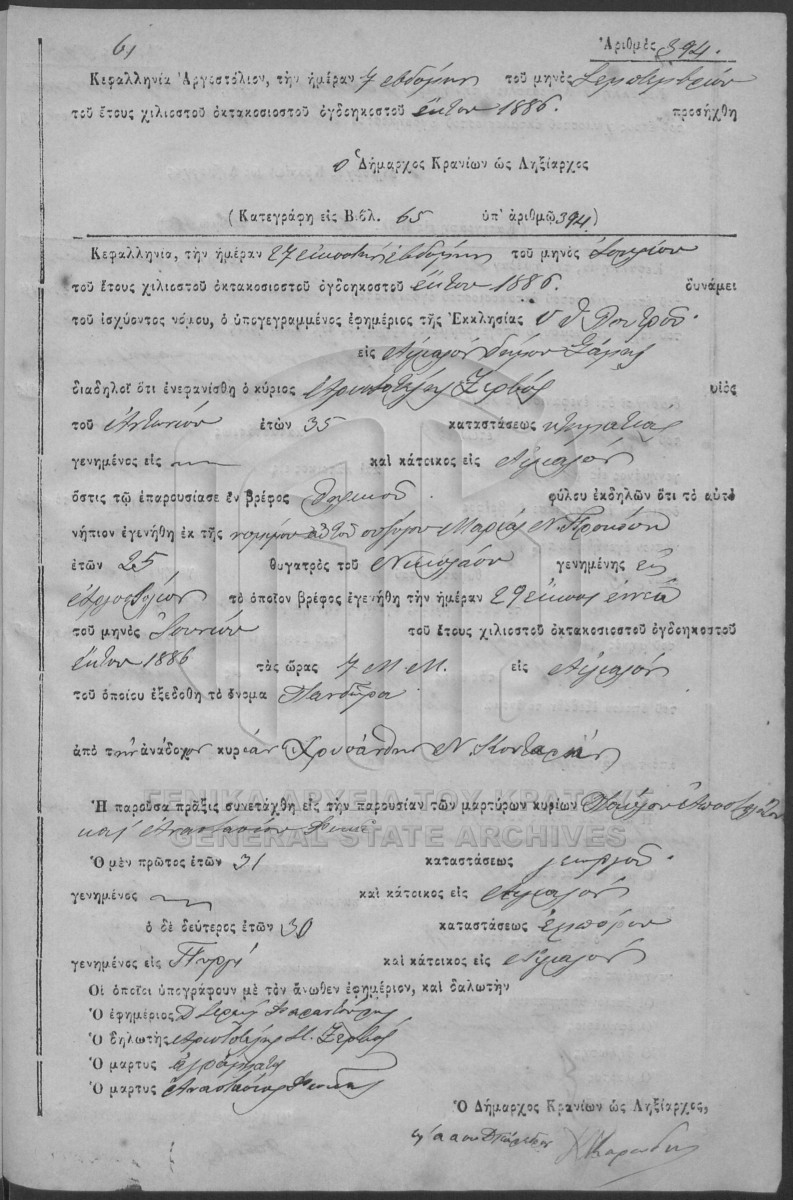 61
Ἀριθμὸς 394.
Κεφαλληνία Ἀργοστόλιον, τὴν ἡμέραν 7 ἑβδόμην τοῦ μηνὸς Σεπτεμβρίου
τοῦ ἔτους χιλιοστοῦ ὀκτακοσιοστοῦ ὀγδοηκοστοῦ ἕκτου 1886. προσήχθη
ὁ Δήμαρχος Κρανίων ὡς Ληξίαρχος
(Κατεγράφη εἰς Βιβλ. 65 ὑπ' ἀριθμῷ 394)
Κεφαλληνία, τὴν ἡμέραν 27 εικοστήν ἑβδόμην τοῦ μηνὸς Ἰουλίου
τοῦ ἔτους χιλιοστοῦ ὀκτακοσιοστοῦ ὀγδοηκοστοῦ ἕκτου 1886. δυνάμει
τοῦ ἰσχύοντος νόμου, ὁ ὑπογεγραμμένος ἐφημέριος τῆς Ἐκκλησίας
εἰς Αἰγιαλόν δήμου Σάμης
διαδηλοῖ ὅτι ἐνεφανίσθη ὁ κύριος Ἀριστοτέλης Ζερβός υἱὸς
τοῦ Ἀντωνίου ἐτῶν 35 καταστάσεως κτηματίας
γενημένος εἰς καὶ κάτοικος εἰς Αἰγιαλόν
ὅστις τῷ ἐπαρουσίασε ἓν βρέφος θηλυκοῦ. φύλου ἐκδηλῶν ὅτι τὸ αὐτὸ
νήπιον ἐγενήθη ἐκ τῆς νομίμου αὐτοῦ συζύγου Μαρίας Ν.
ἐτῶν 25 θυγατρὸς τοῦ Νικολάου γενημένης εἰς
Ἀργοστόλιον τὸ ὁποῖον βρέφος ἐγενήθη τὴν ἡμέραν 29 εἰκοστ ἐννέα
τοῦ μηνὸς Ἰουνίου τοῦ ἔτους χιλιοστοῦ ὀκτακοσιοστοῦ ὀγδοηκοστοῦ
ἕκτου 1886 τὰς ὥρας 7 Μ Μ. εἰς Αἰγιαλόν
τοῦ ὁποίου ἐξεδόθη τὸ ὄνομα Πανδώρα
ἀπὸ τὴν ἀνάδοχον κυρίαν Χρυσάνθην Ν.
ΓΕΝΙΚΑ ΑΡΧΕΙΑ ΤΟΥ ΚΡΑΤΟΥΣ
Ἡ παροῦσα πρᾶξις συνετάχθη εἰς τὴν παρουσίαν τῶν μαρτύρων κυρίων Παύλου Ἀποστολάτου
καὶ Ἀναστασίου Φωκᾶ
GENERAL STATE ARCHIVES
Ὁ μὲν πρῶτος ἐτῶν 31 καταστάσεως γεωργοῦ.
γενημένος καὶ κάτοικος εἰς Αἰγιαλόν
ὁ δὲ δεύτερος ἐτῶν 30 καταστάσεως ἐμπόρου
γενημένος εἰς Πυργί καὶ κάτοικος εἰς Αἰγιαλόν
Οἱ ὁποῖοι ὑπογράφουν μὲ τὸν ἄνωθεν ἐφημέριον, καὶ δηλωτὴν
Ὁ ἐφημέριος
Ὁ δηλωτὴς Ἀριστοτέλης Α. Ζερβός
Ὁ μαρτυς ἀγράμματος
Ὁ μαρτυς Ἀναστάσιος Φωκᾶς
Ὁ Δήμαρχος Κρανίων ὡς Ληξίαρχος,